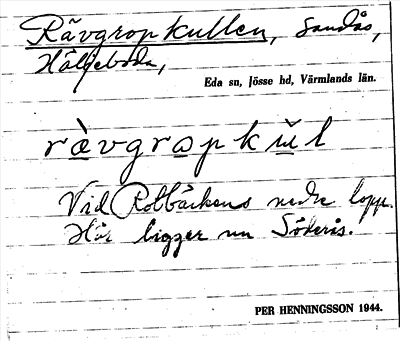 Rävgropkullen, Sandås,
Hälgeboda,
Eda sn, Jösse hd, Värmlands län.
rävgropkul
Vid Rolbäckens nedre lopp.
Här ligger nu Söderås.
PER HENNINGSSON 1944.